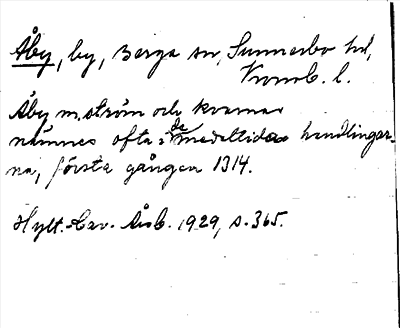 Åby, by, Berga sn, Sunnerbo hd,
Kronob. l.
Åby m. ström och kvarnar
nämnes ofta i de medeltida handlingar-
na, första gången 1314.
Hylt.-Cav. Årsb. 1929, s. 365.